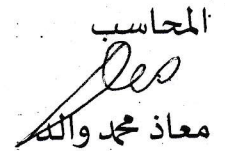 المحاسب
معاذ محمد والد